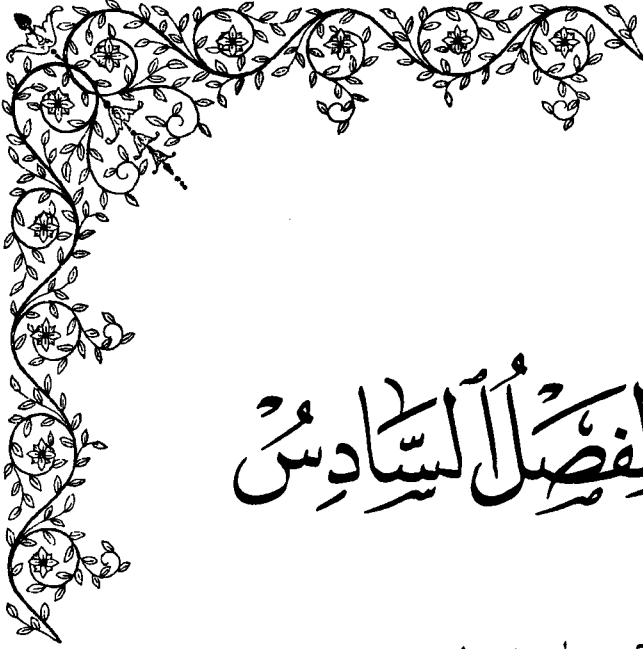 لفَصْلُ ٱلسَّادِسُ